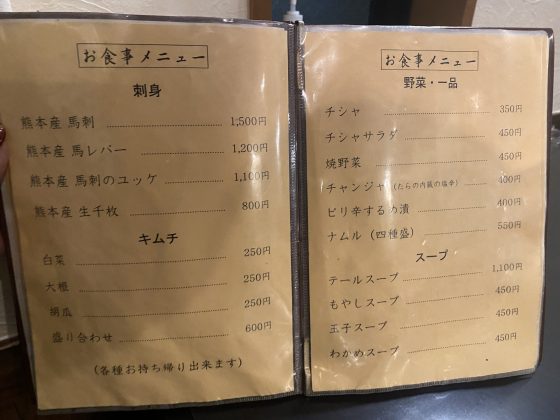 お食事メニュー
刺身
熊本産 馬刺 1,500円
熊本産 馬レバー 1,200円
熊本産 馬刺のユッケ 1,100円
熊本産 生千枚 800円
キムチ
白菜 250円
大根 250円
胡瓜 250円
盛り合わせ 600円
(各種お持ち帰り出来ます)
お食事メニュー
野菜・一品
チシャ 350円
チシャサラダ 450円
焼野菜 450円
チャンジャ(たらの内蔵の塩辛) 400円
ピリ辛するめ漬 400円
ナムル(四種盛) 550円
スープ
テールスープ 1,100円
もやしスープ 450円
玉子スープ 450円
わかめスープ 450円